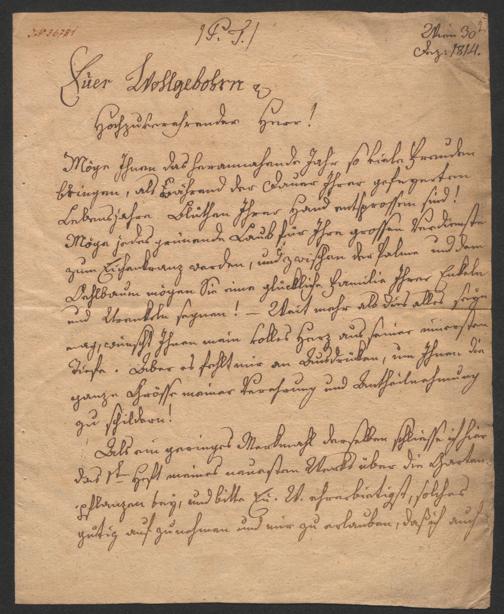 I.N 36781
/P. T./
Wien 30t
Dez: 1814.
Euer Wohlgebohrn &
Hochzuverehrender Herr!
Möge Ihnen das herannahende Jahr so viele Freuden
bringen, als während der Dauer Ihrer gefeyerten
Lebensjahre Blüthen Ihrer Hand entsprossen sind!
Möge jedes grünende Laub für Ihre grossen Verdienste
zum Eichenkranz werden, und zwischen der Palme und dem
Oehlbaum mögen Sie eine glückliche Familie Ihrer Enkeln
und Urenkeln segnen! – Weit mehr als dies alles sagen
mag, wünscht Ihnen mein volles Herz aus seiner innersten
Tiefe. Aber es fehlt mir an Ausdrüken, um Ihnen die
ganze Grösse meiner Verehrung und Antheilnehmung
zu schildern!
Als ein geringes Merkmahl derselben schliesse ich hier
das 1te Heft meines neuesten Werks über die Garten-
pflanzen bey, und bitte Eu. W. ehrerbietigst, solches
gütig aufzunehmen und mir zu erlauben, daß ich auch